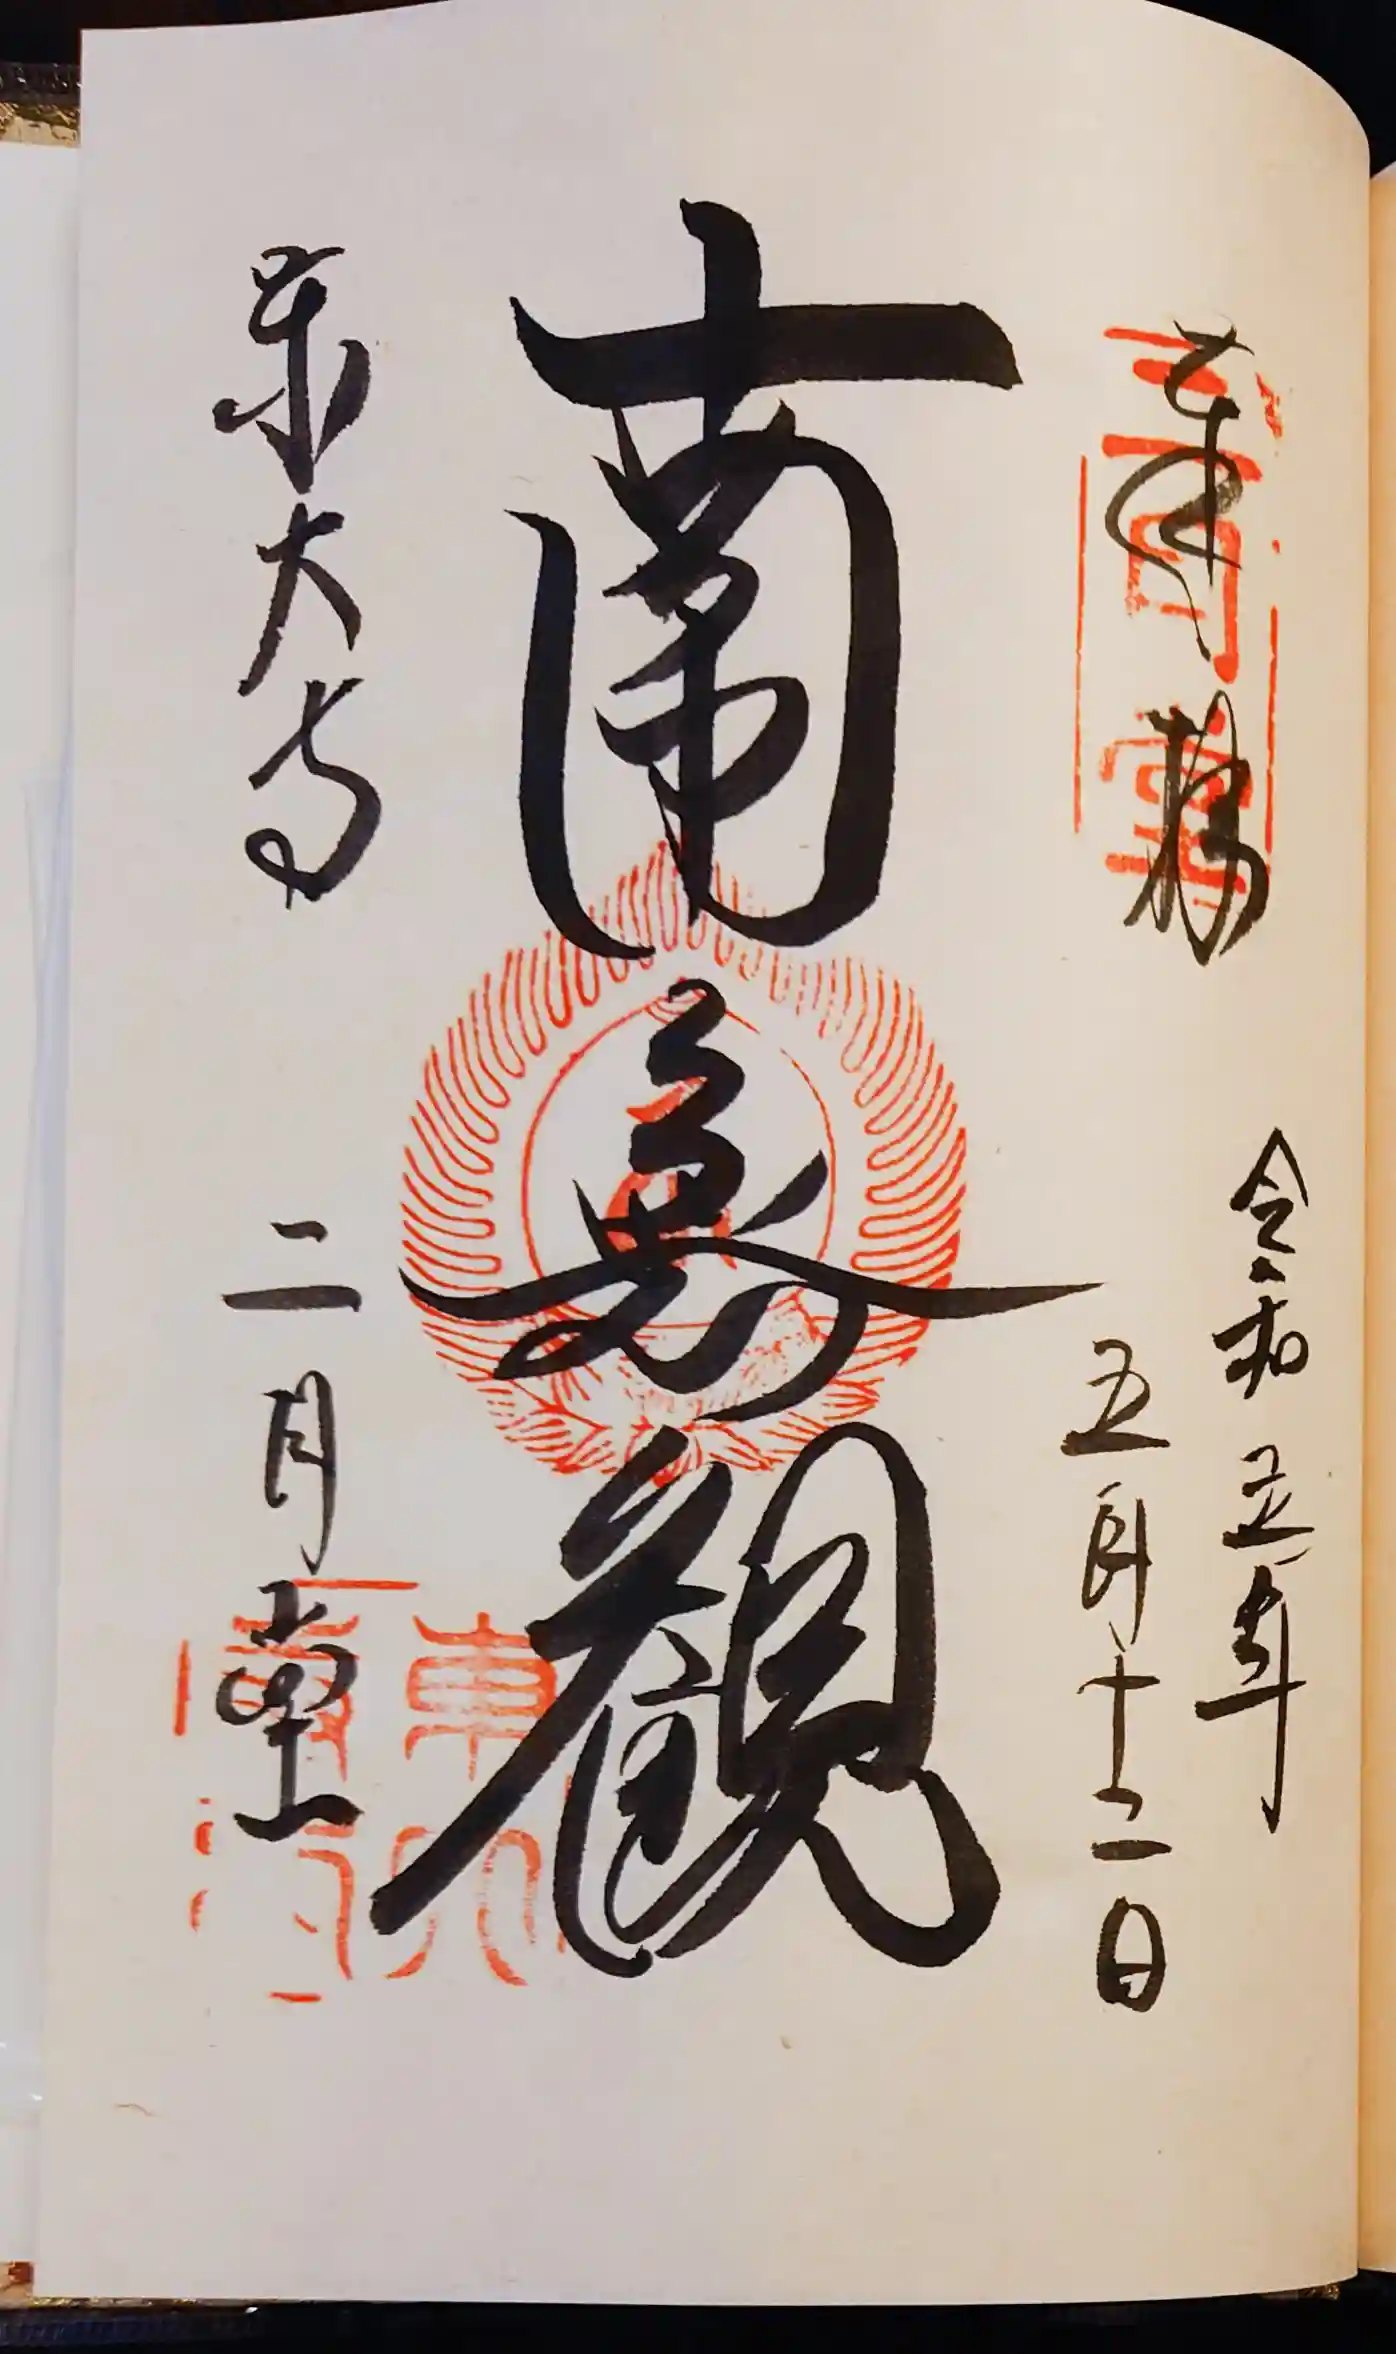 奉拝
令和五年
五月十二日
二月堂
南無観
東大寺
二月堂